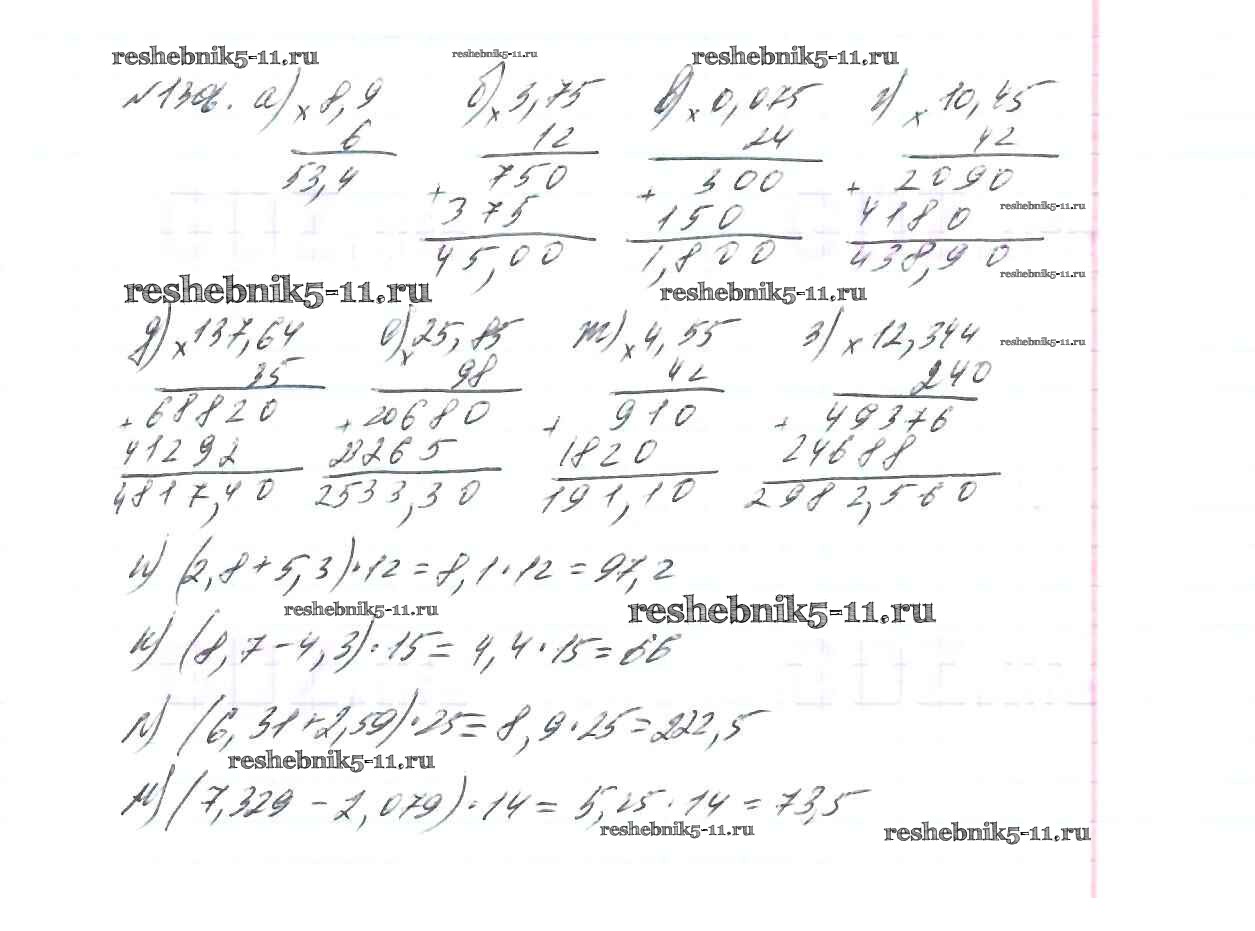 reshebnik5-11.ru reshebnik5-11.ru reshebnik5-11.ru
а) × 8,9 б) × 3,75 в) × 0,075 г) × 10,45
6 12 24 42
53,4 + 750 + 300 + 2090
375 150 4180 reshebnik5-11.ru
45,00 1,800 438,90
reshebnik5-11.ru
reshebnik5-11.ru reshebnik5-11.ru
д) × 137,64 е) × 25,85 ж) × 4,55 з) × 12,344 reshebnik5-11.ru
35 98 42 240
+ 68820 + 20680 + 910 + 49376
41292 23265 1820 24688
4817,40 2533,30 191,10 2982,560
и) (2,8+5,3)·12=8,1·12=97,2
reshebnik5-11.ru reshebnik5-11.ru
к) (8,7-4,3)·15=4,4·15=66
л) (6,31+2,59)·25=8,9·25=222,5
reshebnik5-11.ru
м) (7,329-2,079)·14=5,25·14=73,5
reshebnik5-11.ru reshebnik5-11.ru